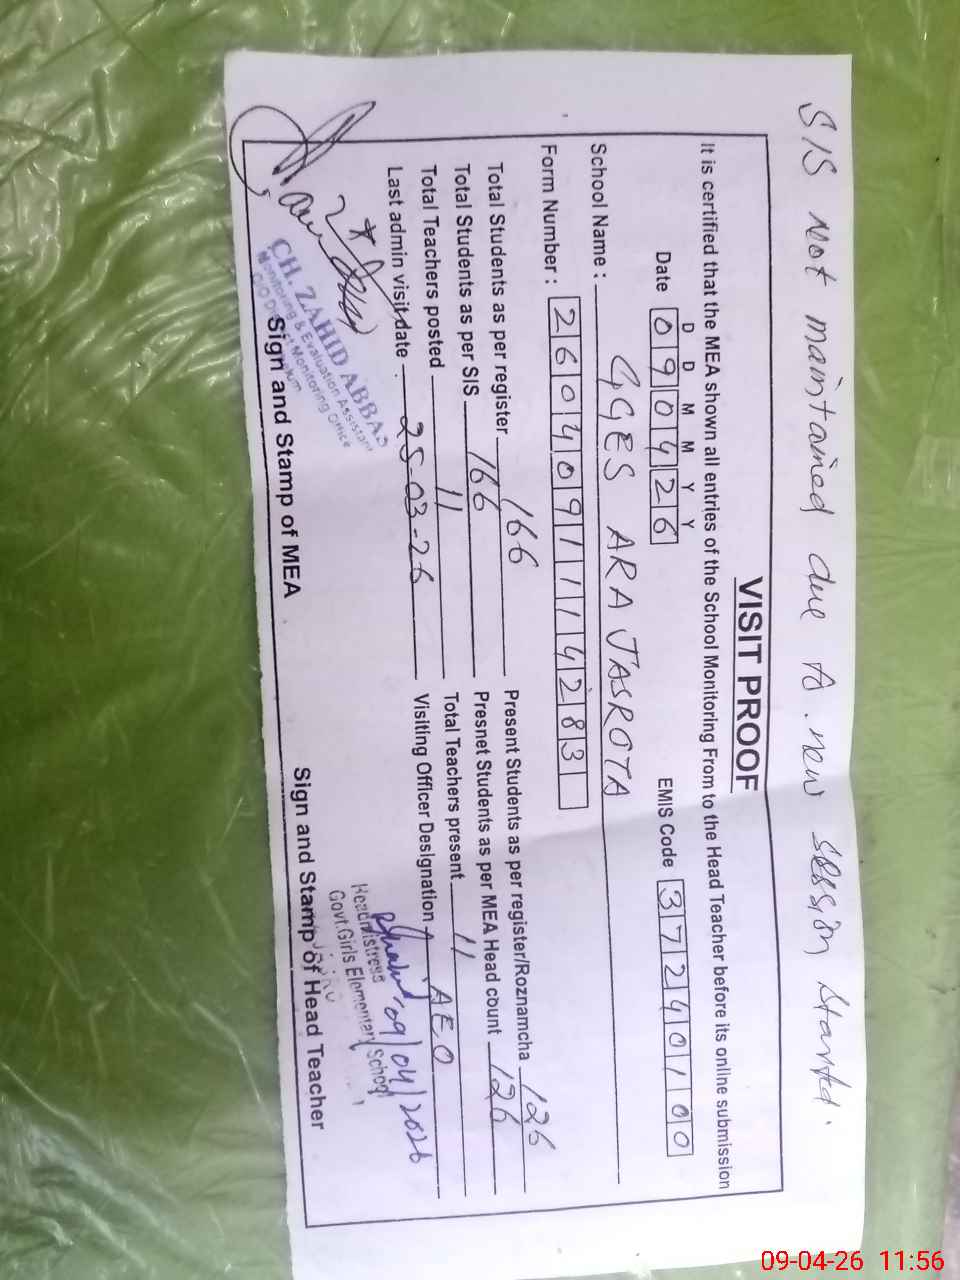 SIS Not maintained due to new session started.
VISIT PROOF
It is certified that the MEA shown all entries of the School Monitoring From to the Head Teacher before its online submission
D D M M Y Y
Date 090426 EMIS Code 37240100
School Name : GGES ARA JASROTA
Form Number : 2604091114283
Total Students as per register 166 Present Students as per register/Roznamcha 126
Total Students as per SIS 166 Presnet Students as per MEA Head count 126
Total Teachers posted 11 Total Teachers present 11
Last admin visit date 25-03-26 Visiting Officer Designation AEO
09/04/2026
Headmistress
Govt.Girls Elementary School
CH. ZAHID ABBAS
Monitoring & Evaluation Assistant
O/O District Monitoring Office
Sign and Stamp of MEA Sign and Stamp of Head Teacher
09-04-26 11:56